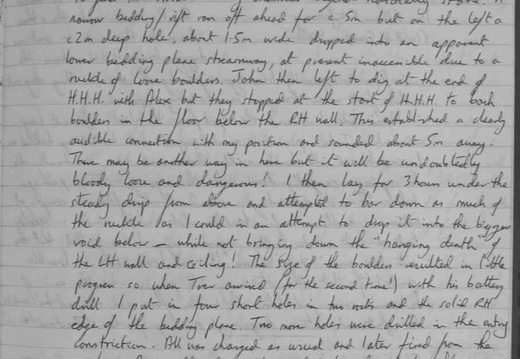 narrow bedding/rift ran off ahead for c. 5m but on the left a
c2m deep hole, about 1.5m wide dropped into an apparent
lower bedding plane streamway, at present inaccessible due to a
ruckle of loose boulders. John then left to dig at the end of
H.H.H. with Alex but they stopped at the start of H.H.H. to bash
boulders in the floor below the RH wall. This established a clearly
audible connection with my position and sounded about 5m away.
There may be another way in here but it will be undoubtedly
bloody loose and dangerous! I then lay for 3 hours under the
steady drip from above and attempted to bar down as much of
the ruckle as I could in an attempt to drop it into the bigger
void below - while not bringing down the "hanging death" of
the LH wall and ceiling! The size of the boulders resulted in little
progress so when Trev arrived (for the second time!) with his battery
drill I put in four short holes in two rocks and the solid RH
edge of the bedding plane. Two more holes were drilled in the entry
constriction. All was charged as usual and later fired from the